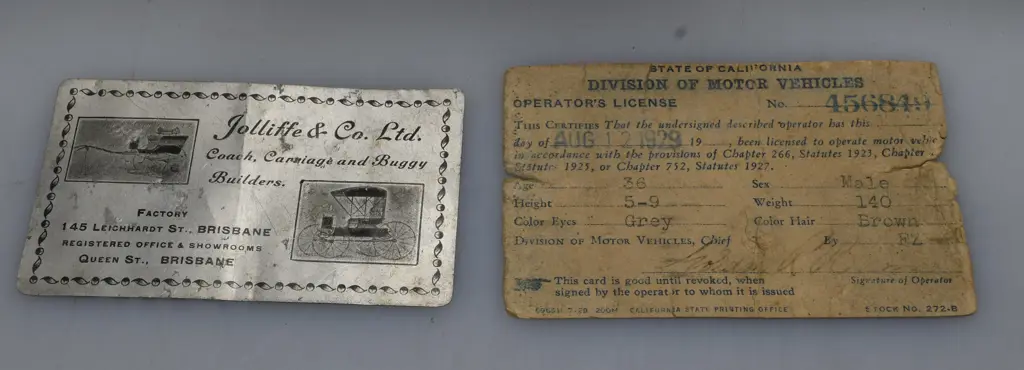 Jolliffe & Co. Ltd.
Coach, Carriage and Buggy
Builders.
FACTORY
145 LEICHHARDT ST., BRISBANE
REGISTERED OFFICE & SHOWROOMS
QUEEN ST., BRISBANE
STATE OF CALIFORNIA
DIVISION OF MOTOR VEHICLES
OPERATOR'S LICENSE No. 456849
THIS CERTIFIES That the undersigned described operator has this
day of AUG 12 1929 19 , been licensed to operate motor vehicle
in accordance with the provisions of Chapter 266, Statutes 1923, Chapter
Statutes 1925, or Chapter 752, Statutes 1927.
Age 36 Sex Male
Height 5-9 Weight 140
Color Eyes Grey Color Hair Brown
DIVISION OF MOTOR VEHICLES, Chief By
Signature of Operator
This card is good until revoked, when
signed by the operator to whom it is issued
7-29 200M CALIFORNIA STATE PRINTING OFFICE STOCK NO. 272-B